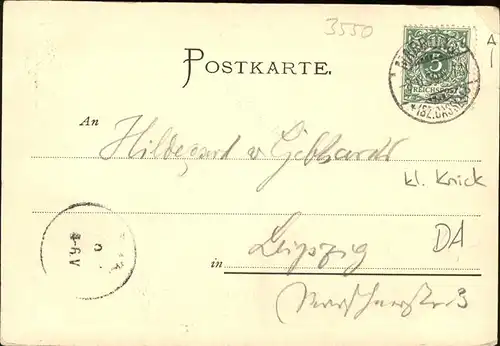 3550
A
5
REICHSPOST
(BZ.DRESDEN)
POSTKARTE.
An
Hildegard v Gebhardt
kl. Knick
DA
in Leipzig
Marschnerstr 3